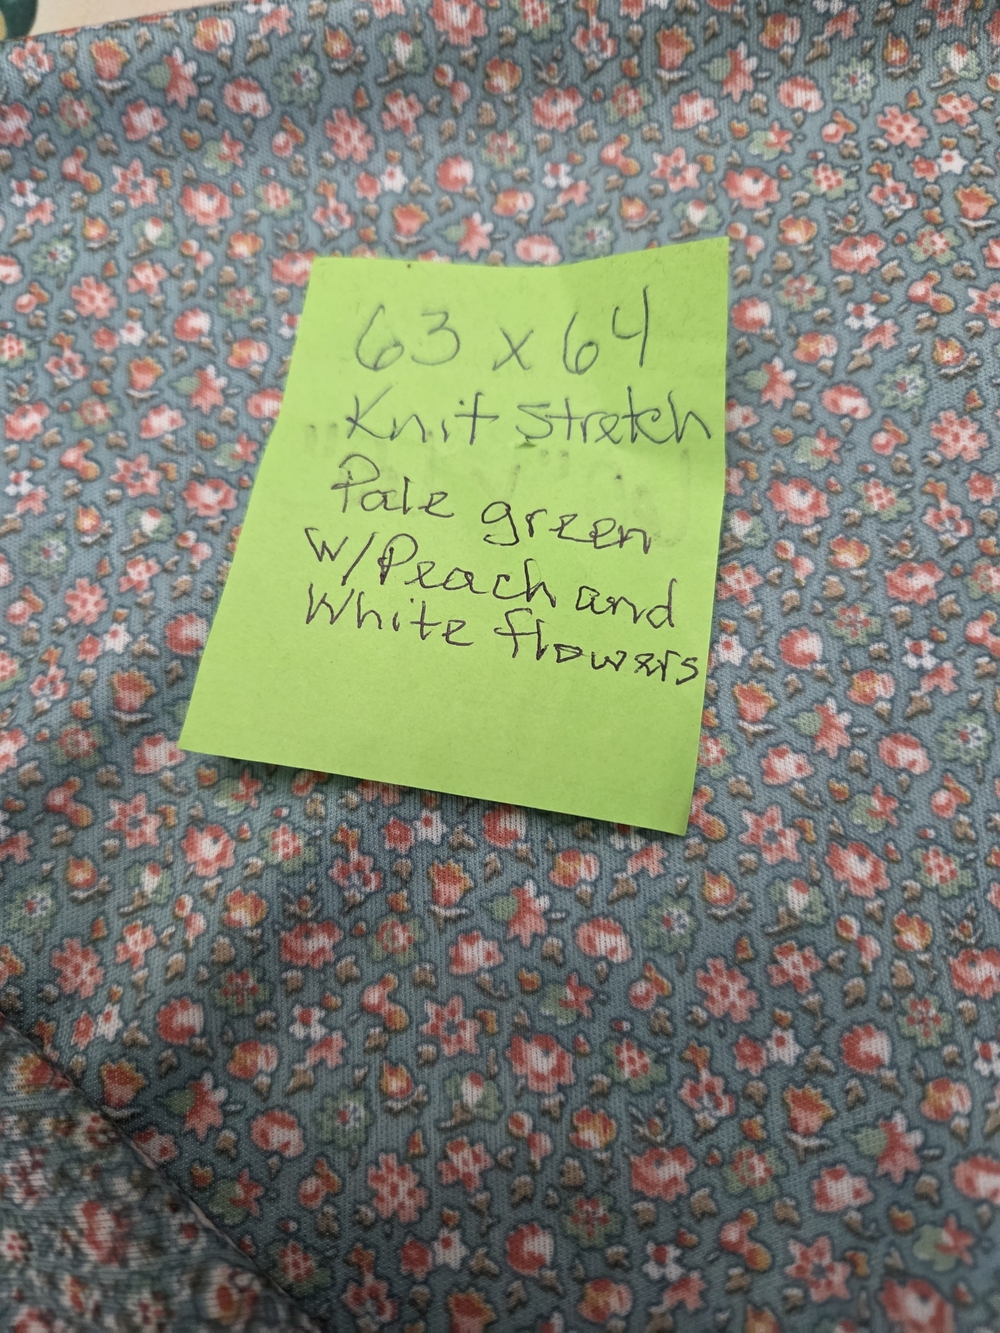 63 x 64
Knit stretch
Pale green
w/Peach and
White flowers